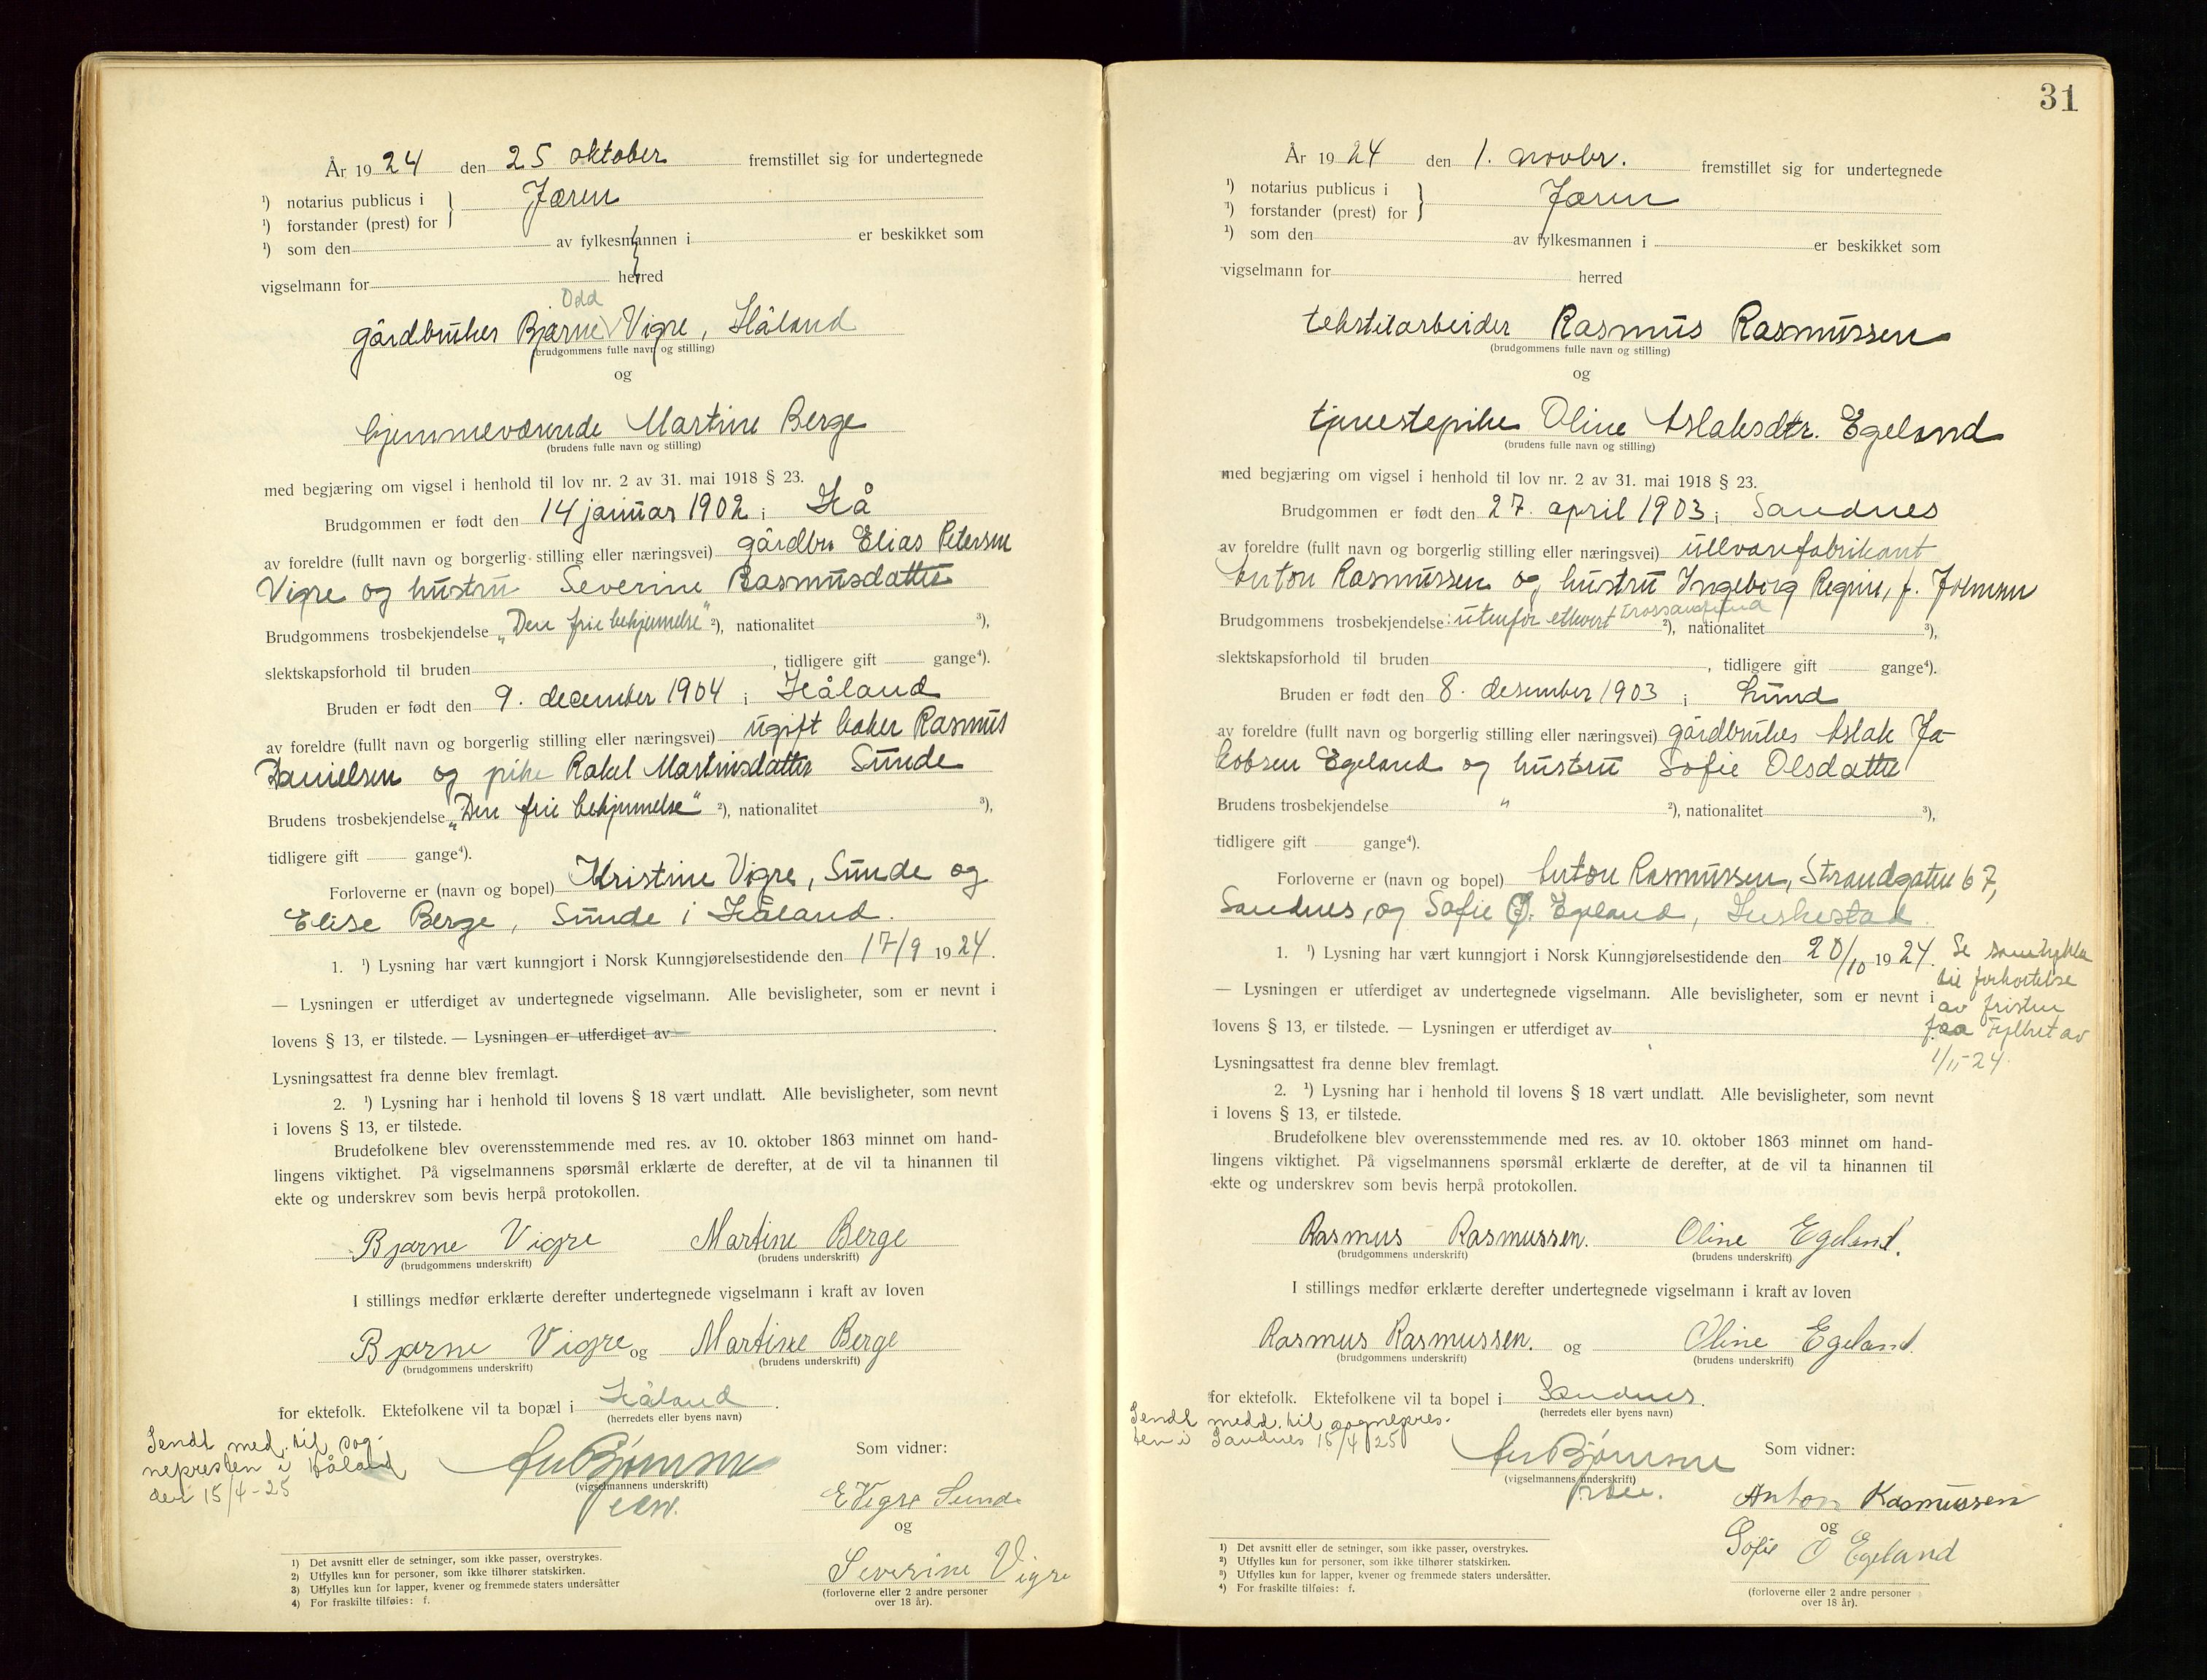 År 1924 den 25 oktober fremstillet sig for undertegnede
¹) notarius publicus i } Jæren
¹) forstander (prest) for
¹) som den av fylkesmannen i er beskikket som
vigselmann for herred
Odd
gårdbruker Bjarne Vigre, Håland
(brudgommens fulle navn og stilling)
og
hjemmeværende Martine Berge
(brudens fulle navn og stilling)
med begjæring om vigsel i henhold til lov nr. 2 av 31. mai 1918 § 23.
Brudgommen er født den 14 januar 1902 i Hå
av foreldre (fullt navn og borgerlig stilling eller næringsvei) gårdbr. Elias Petersen
Vigre og hustru Severine Rasmusdatter
Brudgommens trosbekjendelse „Den frie bekjennelse" ²), nationalitet ³),
slektskapsforhold til bruden , tidligere gift gange⁴).
Bruden er født den 9. december 1904 i Håland
av foreldre (fullt navn og borgerlig stilling eller næringsvei) ugift baker Rasmus
Danielsen og pike Rakel Martinsdatter Sunde
Brudens trosbekjendelse „Den frie bekjennelse" ²), nationalitet ³),
tidligere gift gange⁴).
Forloverne er (navn og bopel) Kristine Vigre, Sunde og
Elise Berge, Sunde i Håland.
1. ¹) Lysning har vært kunngjort i Norsk Kunngjørelsestidende den 17/9 1924.
— Lysningen er utferdiget av undertegnede vigselmann. Alle bevisligheter, som er nevnt i
lovens § 13, er tilstede. — Lysningen er utferdiget av .
Lysningsattest fra denne blev fremlagt.
2. ¹) Lysning har i henhold til lovens § 18 vært undlatt. Alle bevisligheter, som nevnt
i lovens § 13, er tilstede.
Brudefolkene blev overensstemmende med res. av 10. oktober 1863 minnet om hand-
lingens viktighet. På vigselmannens spørsmål erklærte de derefter, at de vil ta hinannen til
ekte og underskrev som bevis herpå protokollen.
Bjarne Vigre Martine Berge
(brudgommens underskrift) (brudens underskrift)
I stillings medfør erklærte derefter undertegnede vigselmann i kraft av loven
Bjarne Vigre og Martine Berge
(brudgommens underskrift) (brudens underskrift)
for ektefolk. Ektefolkene vil ta bopæl i Håland.
(herredets eller byens navn)
Sendt med. til sog-
nepresten i Håland
den 15/4-25
(vigselmannens underskrift)
Som vidner:
E Vigre Sunde
og
Severine Vigre
(forloverne eller 2 andre personer
over 18 år).
1) Det avsnitt eller de setninger, som ikke passer, overstrykes.
2) Utfylles kun for personer, som ikke tilhører statskirken.
3) Utfylles kun for lapper, kvener og fremmede staters undersåtter
4) For fraskilte tilføies: f.
31
År 1924 den 1. novbr. fremstillet sig for undertegnede
¹) notarius publicus i } Jæren
¹) forstander (prest) for
¹) som den av fylkesmannen i er beskikket som
vigselmann for herred
tekstilarbeider Rasmus Rasmussen
(brudgommens fulle navn og stilling)
og
tjenestepike Oline Aslaksdtr. Egeland
(brudens fulle navn og stilling)
med begjæring om vigsel i henhold til lov nr. 2 av 31. mai 1918 § 23.
Brudgommen er født den 27. april 1903 i Sandnes
av foreldre (fullt navn og borgerlig stilling eller næringsvei) ullvarefabrikant
Anton Rasmussen og hustru Ingeborg Regine, f.
Brudgommens trosbekjendelse: utenfor ethvert trossamfund ²), nationalitet ³),
slektskapsforhold til bruden , tidligere gift gange⁴).
Bruden er født den 8. desember 1903 i Lund
av foreldre (fullt navn og borgerlig stilling eller næringsvei) gårdbruker Aslak Ja-
kobsen Egeland og hustru Sofie Olsdatter
Brudens trosbekjendelse " ²), nationalitet ³),
tidligere gift gange⁴).
Forloverne er (navn og bopel) Anton Rasmussen, Strandgaten 67,
Sandnes, og Sofie O. Egeland,
1. ¹) Lysning har vært kunngjort i Norsk Kunngjørelsestidende den 20/10 1924.
— Lysningen er utferdiget av undertegnede vigselmann. Alle bevisligheter, som er nevnt i
lovens § 13, er tilstede. — Lysningen er utferdiget av
Se samtykke
til forkortelse
av fristen
fra Fylket av
1/11-24.
Lysningsattest fra denne blev fremlagt.
2. ¹) Lysning har i henhold til lovens § 18 vært undlatt. Alle bevisligheter, som nevnt
i lovens § 13, er tilstede.
Brudefolkene blev overensstemmende med res. av 10. oktober 1863 minnet om hand-
lingens viktighet. På vigselmannens spørsmål erklærte de derefter, at de vil ta hinannen til
ekte og underskrev som bevis herpå protokollen.
Rasmus Rasmussen. Oline Egeland.
(brudgommens underskrift) (brudens underskrift)
I stillings medfør erklærte derefter undertegnede vigselmann i kraft av loven
Rasmus Rasmussen. og Oline Egeland.
(brudgommens underskrift) (brudens underskrift)
for ektefolk. Ektefolkene vil ta bopel i Sandnes.
(herredets eller byens navn)
Sendt medd. til sognepres-
ten i Sandnes 15/4 25
(vigselmannens underskrift)
Som vidner:
Anton Rasmussen
og
Sofie O Egeland
(forloverne eller 2 andre personer
over 18 år).
1) Det avsnitt eller de setninger, som ikke passer, overstrykes.
2) Utfylles kun for personer, som ikke tilhører statskirken.
3) Utfylles kun for lapper, kvener og fremmede staters undersåtter.
4) For fraskilte tilføies: f.